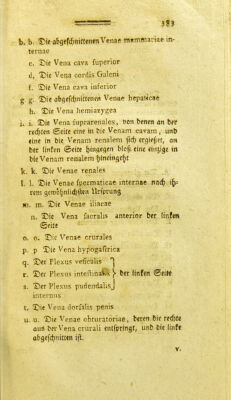 383
b. b. Die abgeschnittenen Venae mammariae in-
ternae
c. Die Vena cava superior
d. Die Vena cordis Galeni
f. Die Vena cava inferior
g g. Die abgeschnittenen Venae hepaticae
h. Die Vena hemiazygea
i. i. Die Vena suprarenales, von denen an der
rechten Seite eine in die Venam cavam, und
eine in die Venam renalem sich ergießet, an
der linken Seite hingegen bloß eine einzige in
die Venam renalem hineingeht
k. k. Die Venae renales
l. l. Die Venae spermaticae internae nach ih-
rem gewöhnlichsten Ursprung
m. m. Die Venae iliacae
n. Die Vena sacralis anterior der linken
Seite
o. o. Die Venae crurales
p. p Die Vena hypogastrica
q. Der Plexus vesicalis
r. Der Plexus intestinalis der linken Seite
s. Der Plexus pudendalis
internus
t. Die Vena dorsalis penis
u. u. Die Venae obturatoriae, deren die rechte
aus der Vena crurali entspringt, und die linke
abgeschnitten ist.
v.